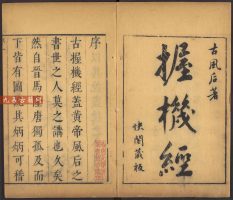 古風后著
握機經
快閣藏板
序
古握機經蓋黃帝風后之
書世之人莫之講也久矣
然自晉馬隆唐獨孤及而
下皆有圖說其炳炳可稽